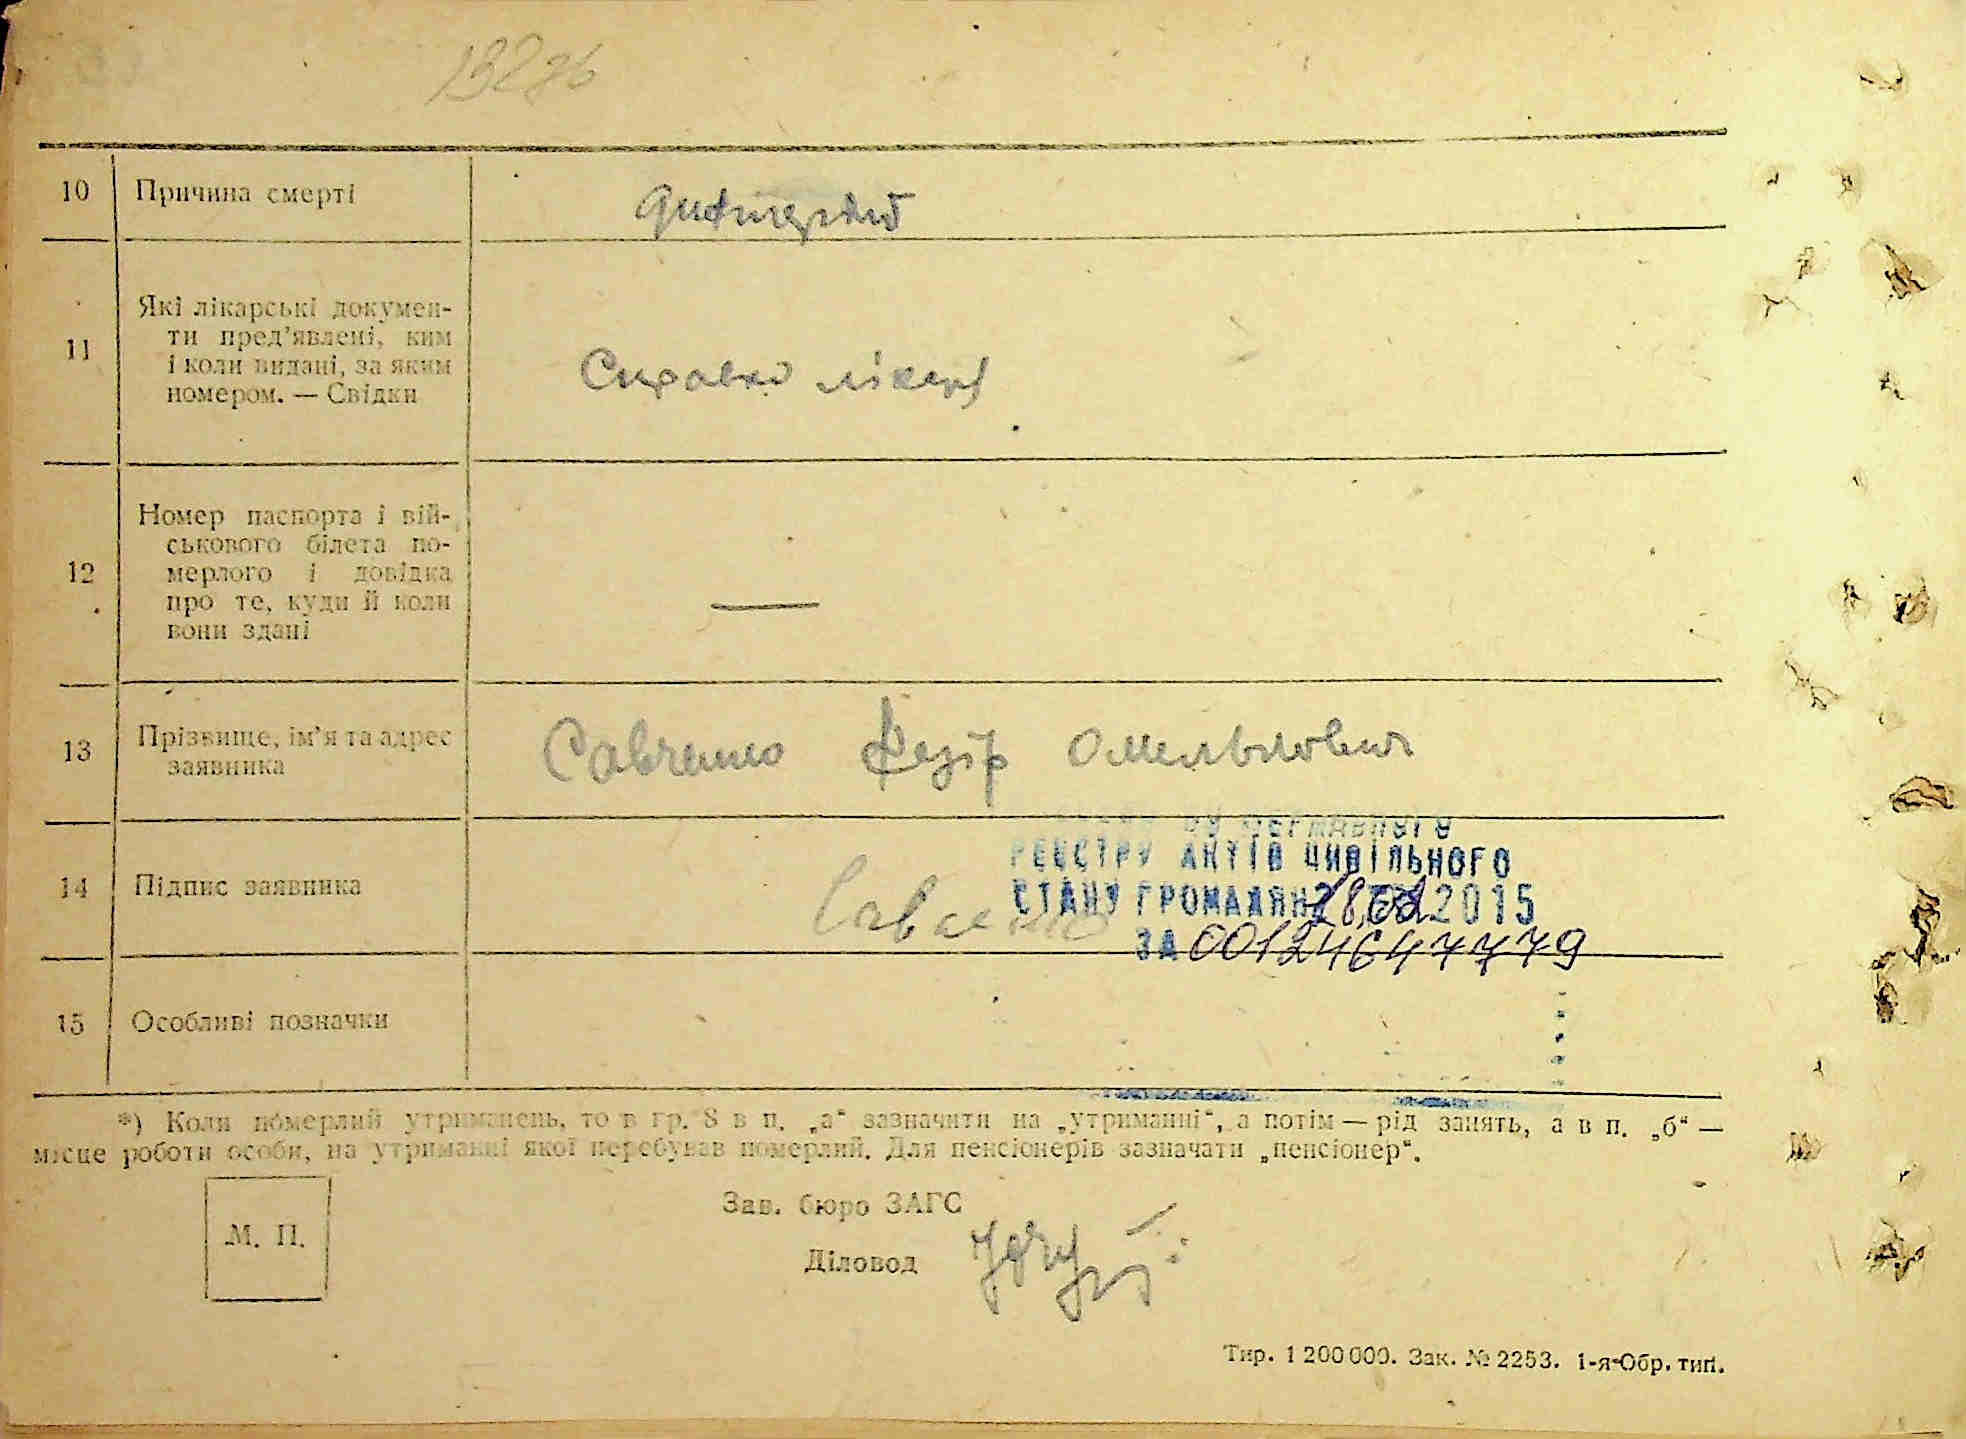 10 Причина смерті
11 Які лікарські докумен-
ти пред’явлені, ким
і коли видані, за яким
номером. — Свідки
Справка лікаря
12 Номер паспорта і вій-
ськового білета по-
мерлого і довідка
про те, куди й коли
вони здані
—
13 Прізвище, ім’я та адрес
заявника
Савченко Омельянович
ДЕРЖАВНОГО
РЕЄСТРУ АКТІВ ЦИВІЛЬНОГО
14 Підпис заявника
Савченко
СТАНУ ГРОМАДЯН 2015
ЗА 00124647779
15 Особливі позначки
*) Коли померлий утриманець, то в гр. 8 в п. „а“ зазначити на „утриманні“, а потім — рід занять, а в п. „б“ —
місце роботи особи, на утриманні якої перебував померлий. Для пенсіонерів зазначати „пенсіонер“.
М. П.
Зав. бюро ЗАГС
Діловод
Тир. 1 200 000. Зак. № 2253. 1-я Обр. тип.